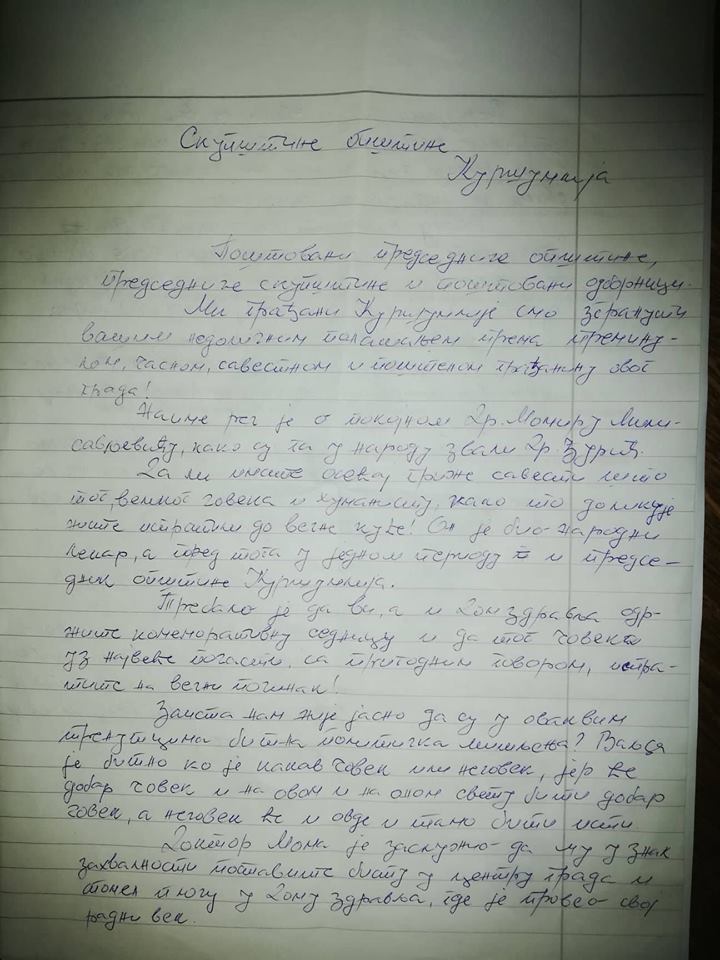 Скупштине општине
Куршумлија
Поштовани председниче општине,
председниче скупштине и поштовани одборници.
Ми грађани Куршумлије смо згранути
вашим недоличним понашањем према премину-
лом, часном, савестном и поштеном грађанину овог
града!
Наиме реч је о покојном Др. Момиру Мили-
савњевићу, како су га у народу звали Др. Зурић.
Да ли имате осећај гриже савести што
тог, великог човека и хуманисту, како што доликује
нисте испратили до вечне куће! Он је био народни
лекар, а пред тога у једном периоду и предсе-
дник општине Куршумлија.
Требало је да ви, а и Дом здравља одр-
жите комеморативну седницу и да тог човека
уз највеће почасти, са пригодним говором, испра-
тите на вечни починак!
Заиста нам није јасно да су у оваквим
тренутцима битна политичка мишљења? Ваљда
је битно ко је какав човек или нечовек, јер ће
добар човек и на овом и на оном свету бити добар
човек, а нечовек ће и овде и тамо бити исти.
Доктор Мома је заслужио да му у знак
захвалности поставите бисту у центру града и
спомен плочу у Дому здравља, где је провео свој
радни век.